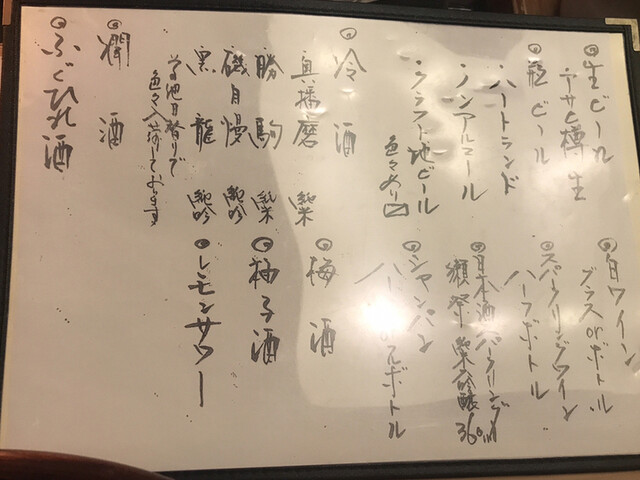 ◉生ビール
アサヒ樽生
◉瓶ビール
ハートランド
ノンアルコール
クラフト地ビール
色々あり
◉冷酒
奥播磨 純米
勝駒 純米
磯自慢 純吟
黒龍 純吟
その他日替りで
色々入荷しております
◉燗酒
◉ふぐひれ酒
◉白ワイン
グラスorボトル
◉スパークリングワイン
ハーフボトル
◉日本酒スパークリング
獺祭 純米吟醸 360ml
◉シャンパン
ハーフorフルボトル
◉梅酒
◉柚子酒
◉レモンサワー